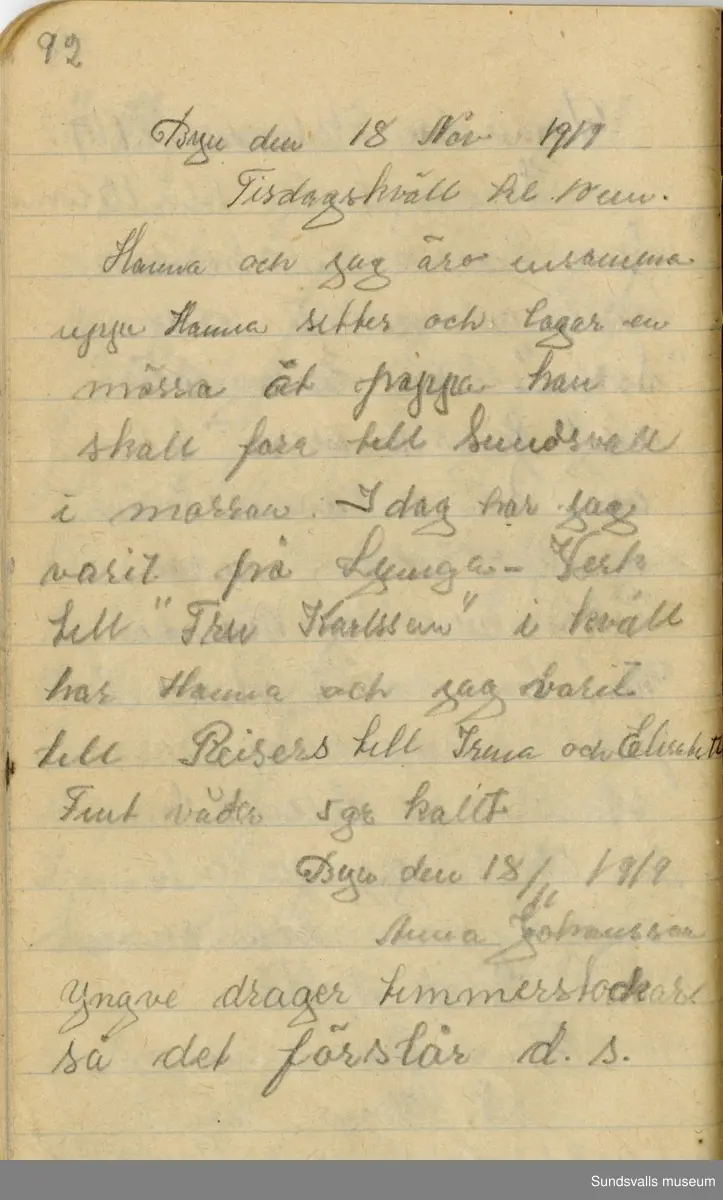 92
Byn den 18 Nov 1919
Tisdagskväll kl.
Hanna och jag äro ensamma
uppe Hanna sitter och lagar en
mössa åt pappa han
skall fara till Sundsvall
i morron. I dag har jag
varit på Ljunga-Verk
till "Fru Karlsson" i kväll
har Hanna och jag varit
till Reisers till Irma och Elisabeth
Fint väder 5gr kallt
Byn den 18/11 1919
Anna Johansson
Yngve drager timmerstockar
så det förslår d. s.
Sundsvalls museum